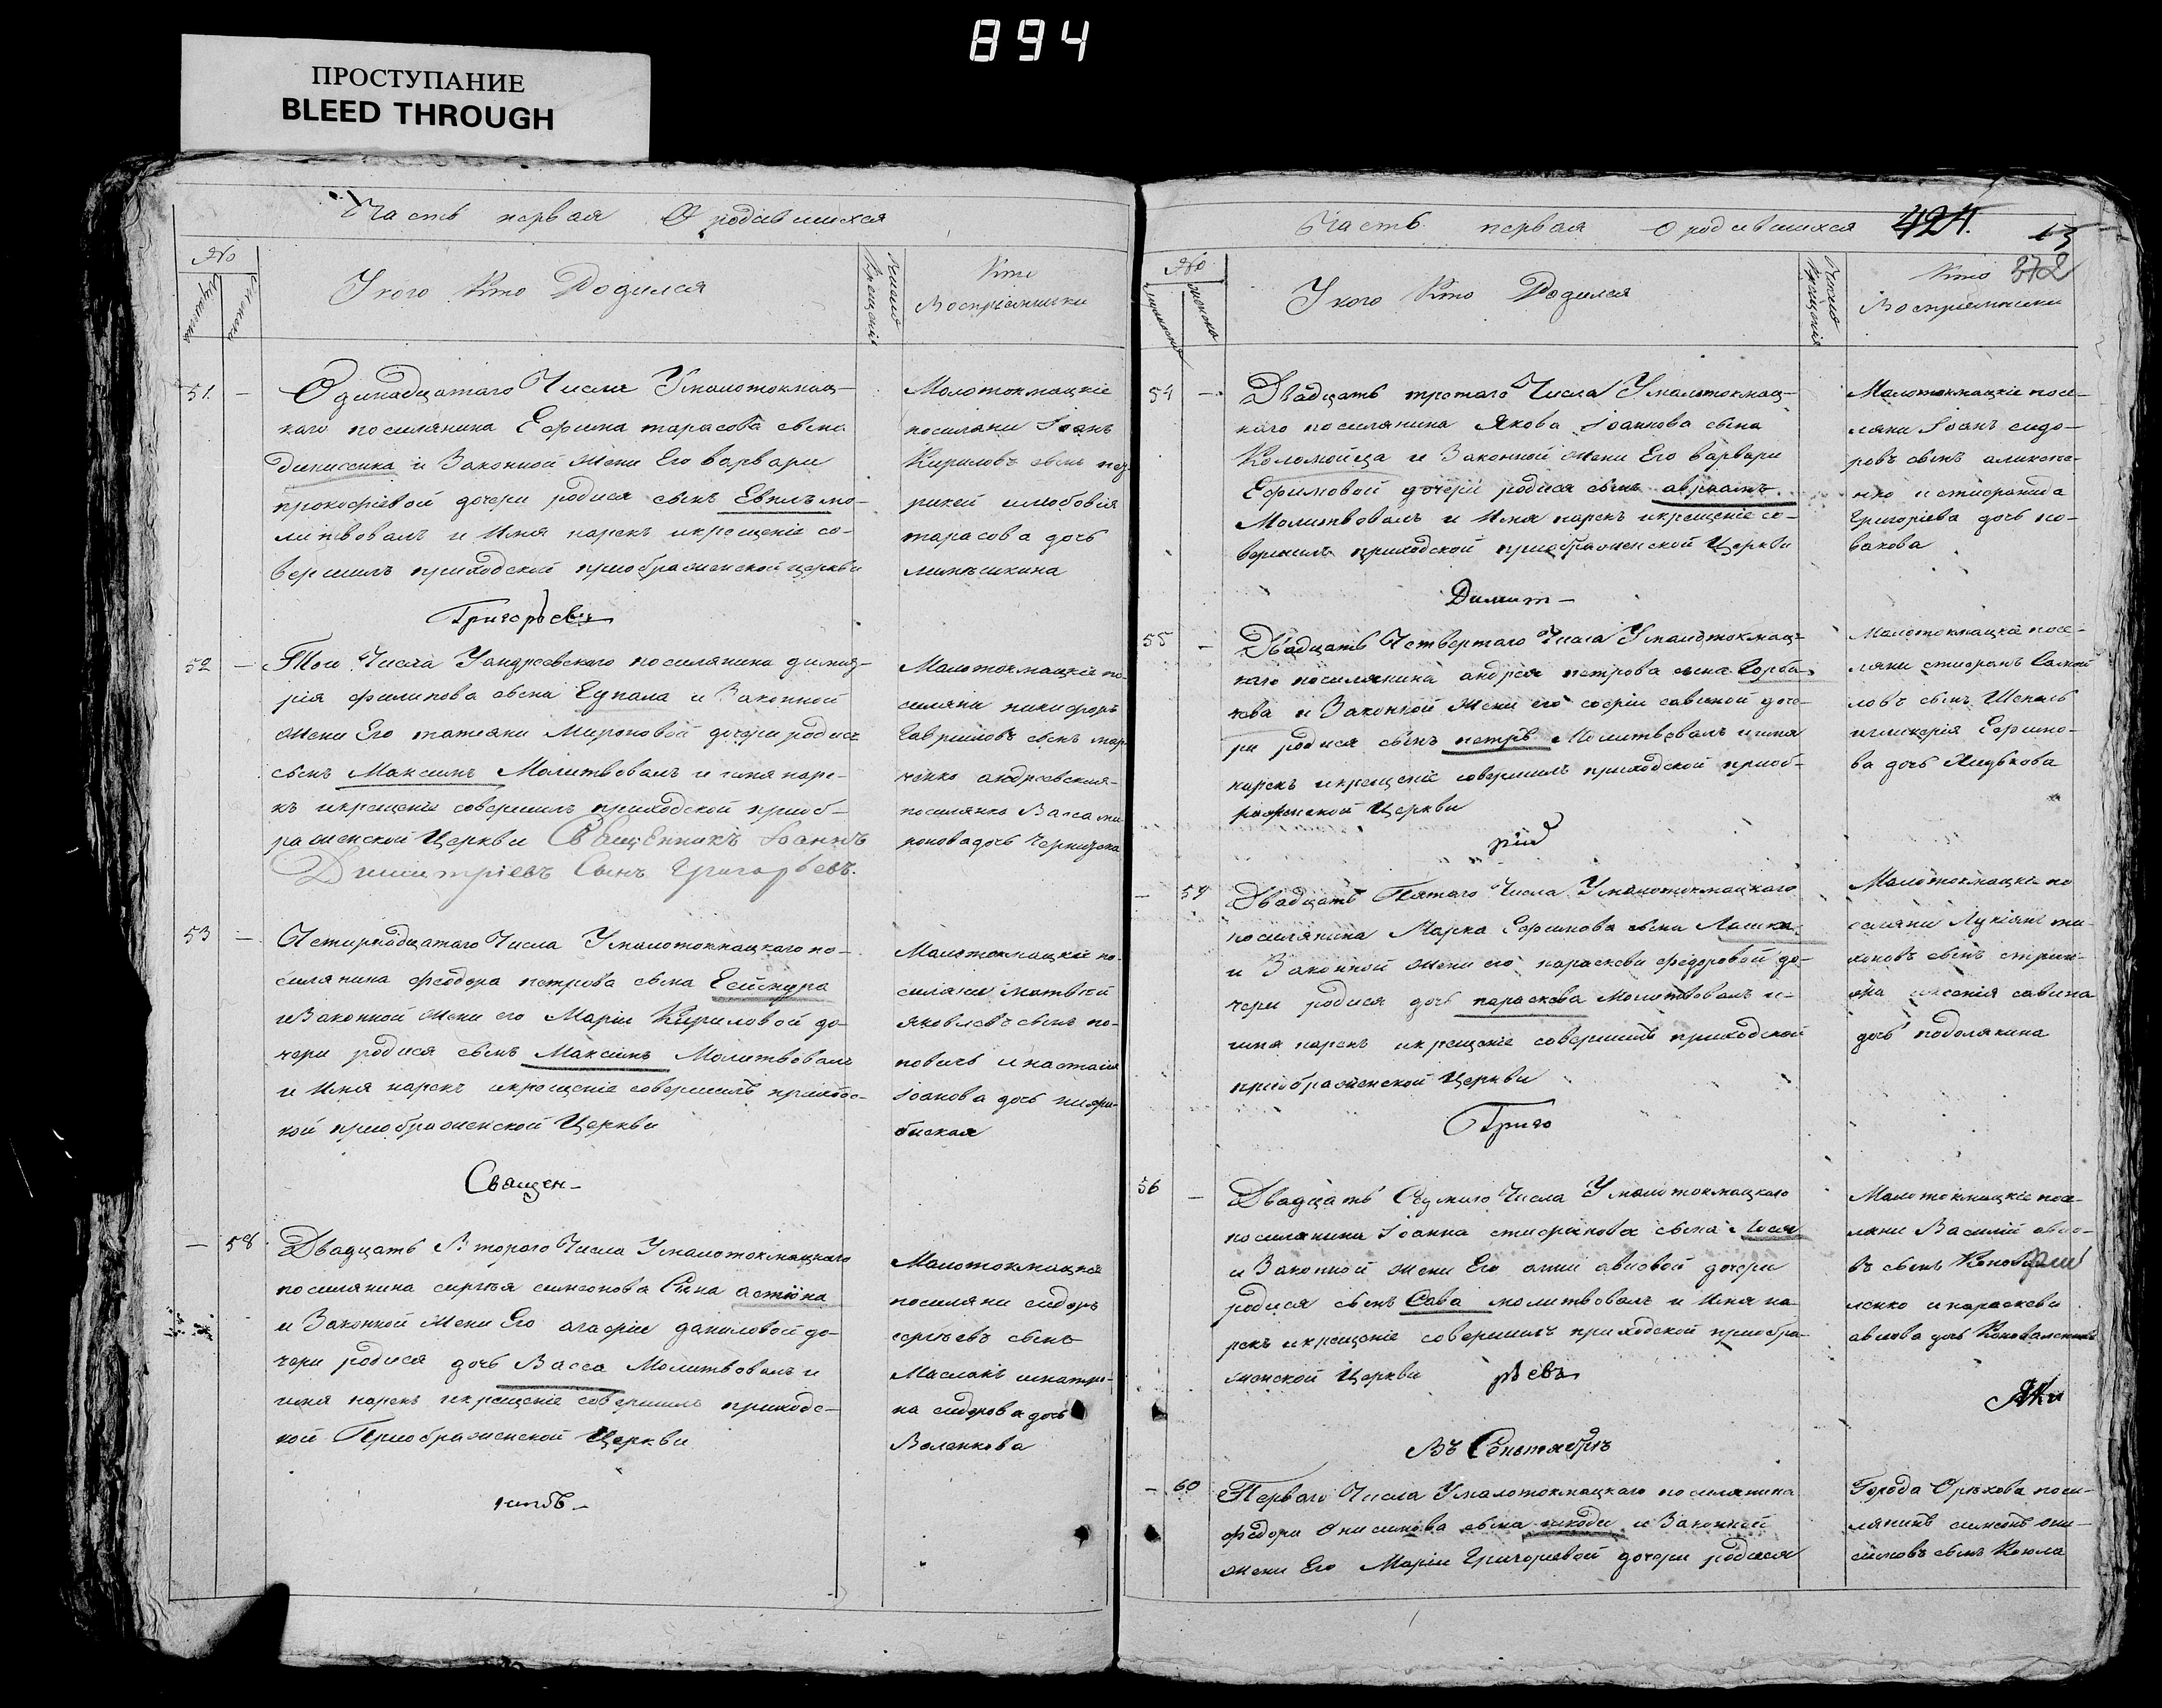 894
ПРОСТУПАНИЕ
BLEED THROUGH
Часть первая О родившихся
№
У кого Кто Родился
Кто
Восприемники
51. —
Одинадцатаго Числа Умалотокмац-
каго поселянина Ефима тарасова сына
Денисенка и Законной жени Его варвари
прокофіевой дочери родися сынъ Евплъ мо-
литвовалъ и Имя нарекъ икрещеніе со-
вершилъ приходской приображенской церкви
Малотокмацкіе
поселяни Іоанъ
Кириловъ сынъ
илюбовія
тарасова дочь
Григорьевъ
52 —
Того Числа Уандреевскаго поселянина димит-
рія филипова сына Цупала и Законной
жени Его татяни Мироновой дочери родися
сынъ Максимъ Молитвовалъ и имя наре-
къ икрещеніе совершилъ приходской приоб-
раженской Церкви Священникъ Іоаннъ
Димитріевъ Сынъ Григорьевъ.
Малотокмацкіе по-
селяни никифоръ
Гавриловъ сынъ мар
ченко андреевская
поселянка Васса ми
ронова дочь
53 —
Четирнадцатаго Числа Умалотокмацкаго по-
селянина феодора петрова сына
иЗаконной жени его Маріи Кириловой до-
чери родися сынъ Максимъ Молитвовалъ
и Имя нарекъ икрещеніе совершилъ приходс-
кой приображенской Церкви
Малотокмацкіе по-
селяни матвей
яковлевъ сынъ по-
повичъ инастасія
Іоанова дочь
Священ-
— 58
Двадцать Второго Числа Умалотокмацкаго
поселянина сергѣя симеонова Сина
и Законной жени Его агафіи даниловой до-
чери родися дочь Васса Молитвовалъ и
имя нарекъ икрещеніе совершилъ приходс-
кой Приображенской Церкви
Малотокмацкіе
поселяни сидоръ
сергѣевъ сынъ
Маслакъ иматро-
на сидорова дочь
Воленкова
никъ —
Часть первая О родившихся
424.
13
372
№
У кого Кто Родился
Кто
Восприемники
54 —
Двадцать третаго Числа Умалотокмац-
каго поселянина Якова Іоаннова сына
Коломойца и Законной жени Его варвари
Ефимовой дочери родися сынъ авраамъ
Молитвовалъ и Имя нарекъ икрещеніе со-
вершилъ приходской приображенской Церкви
Малотокмацкіе посе-
ляни Іоанъ сидо-
ровъ сынъ
нко истефанида
Григоріева дочь но-
вакова
Димит-
55 —
Двадцать Четвертаго Числа Умалотокмац-
каго поселянина андрея петрова сына Горба-
чева и Законной жени его софіи савиной доче-
ри родися сынъ петръ Молитвовалъ иимя
нарекъ икрещеніе совершилъ приходской приоб-
раженской Церкви
Малотокмацкіе посе-
ляни стефанъ
ловъ сынъ
игликерія Ефимо-
ва дочь
рій
— 59
Двадцать Пятаго Числа Умалотокмацкаго
поселянина Марка Ефимова сына
и Законной жени его параскеви федоровой до-
чери родися дочь параскева Молитвовалъ и
имя нарекъ икрещеніе совершилъ приходской
приображенской Церкви
Малотокмацкіе по
селяни Лукіянъ ти-
хоновъ сынъ
иксенія савина
дочь подолякина
Григо
56 —
Двадцать Седмаго Числа Умалотокмацкаго
поселянина Іоанна стефанова сына
и Законной жени Его анни авповой дочери
родися сынъ Сава молитвовалъ и Имя на-
рекъ икрещеніе совершилъ приходской приобра-
женской Церкви
Малотокмацкіе посе-
ляни Василій
въ сынъ
ленко ипараскева
дочь Коноваленкова
рьевъ
Въ Сентябрѣ
— 60
Перваго Числа Умалотокмацкаго поселянина
федора Онисимова сына шкоди и Законной
жени Его Маріи Григоріевой дочери родися
Города Орѣхова посе-
лянинъ симеонъ они-
симовъ сынъ